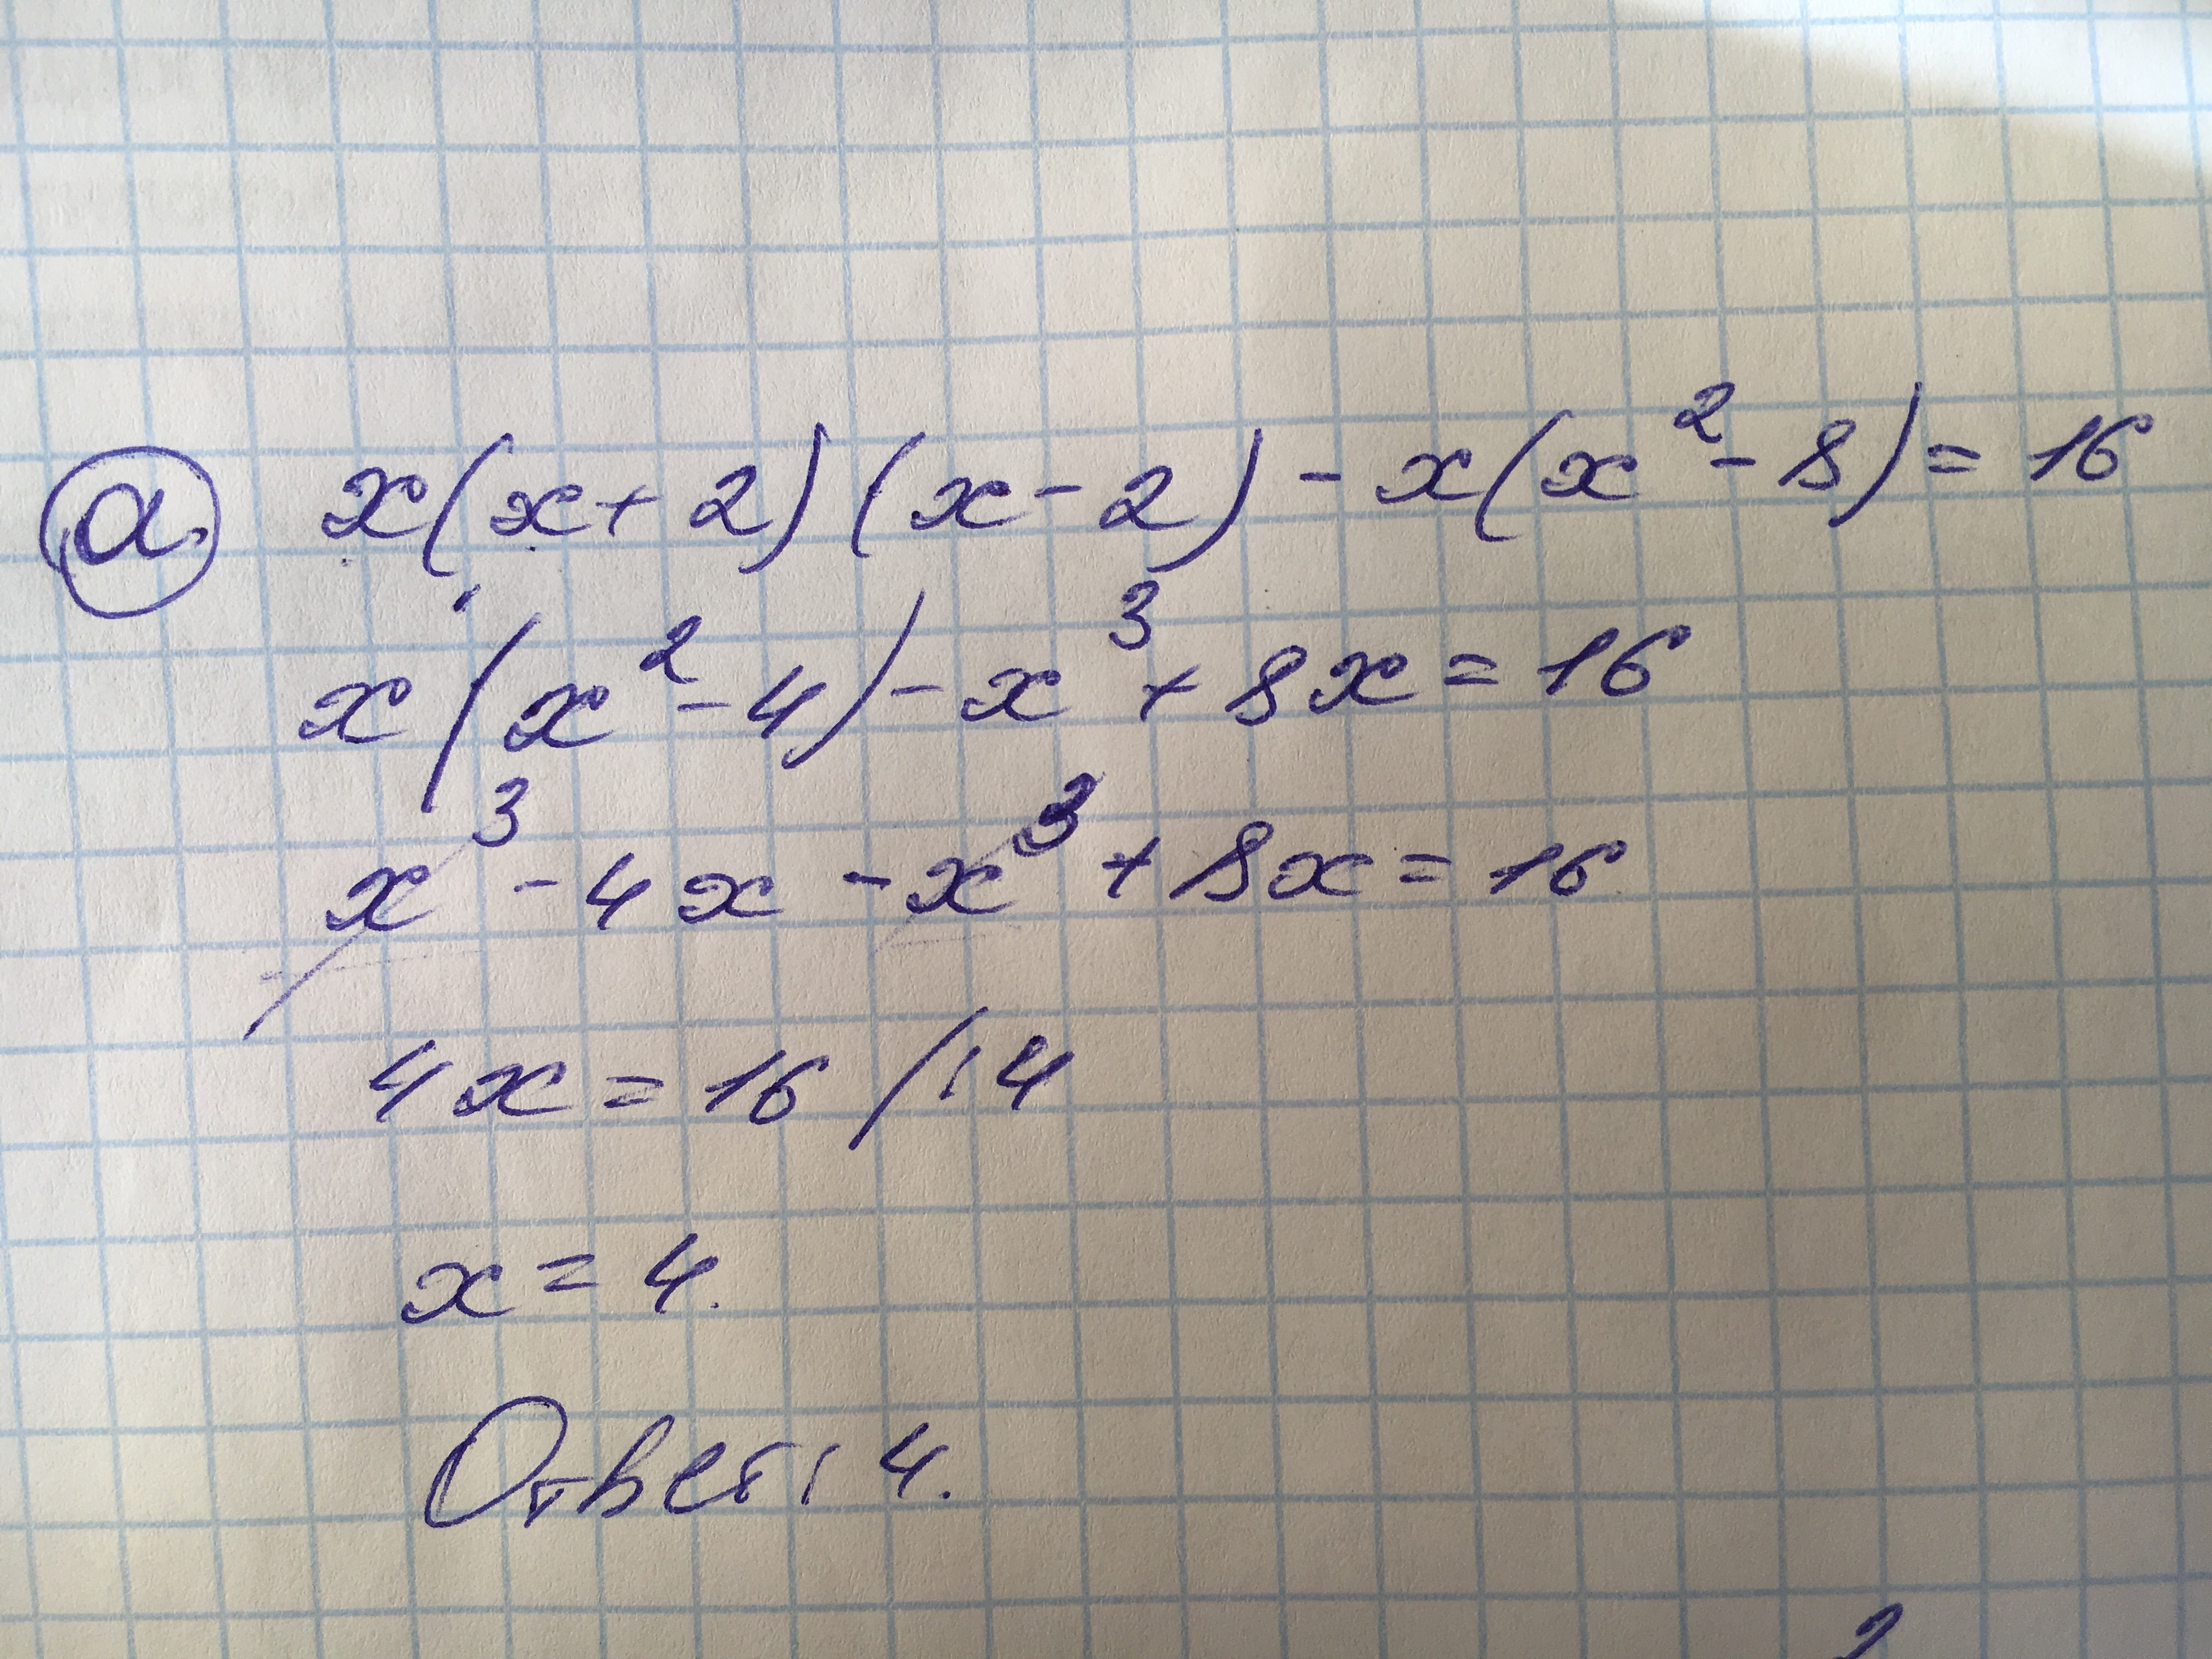 а. x(x+2)(x-2)-x(x²-8)=16
x(x²-4)-x³+8x=16
x³-4x-x³+8x=16
4x=16 /:4
x=4.
Ответ: 4.